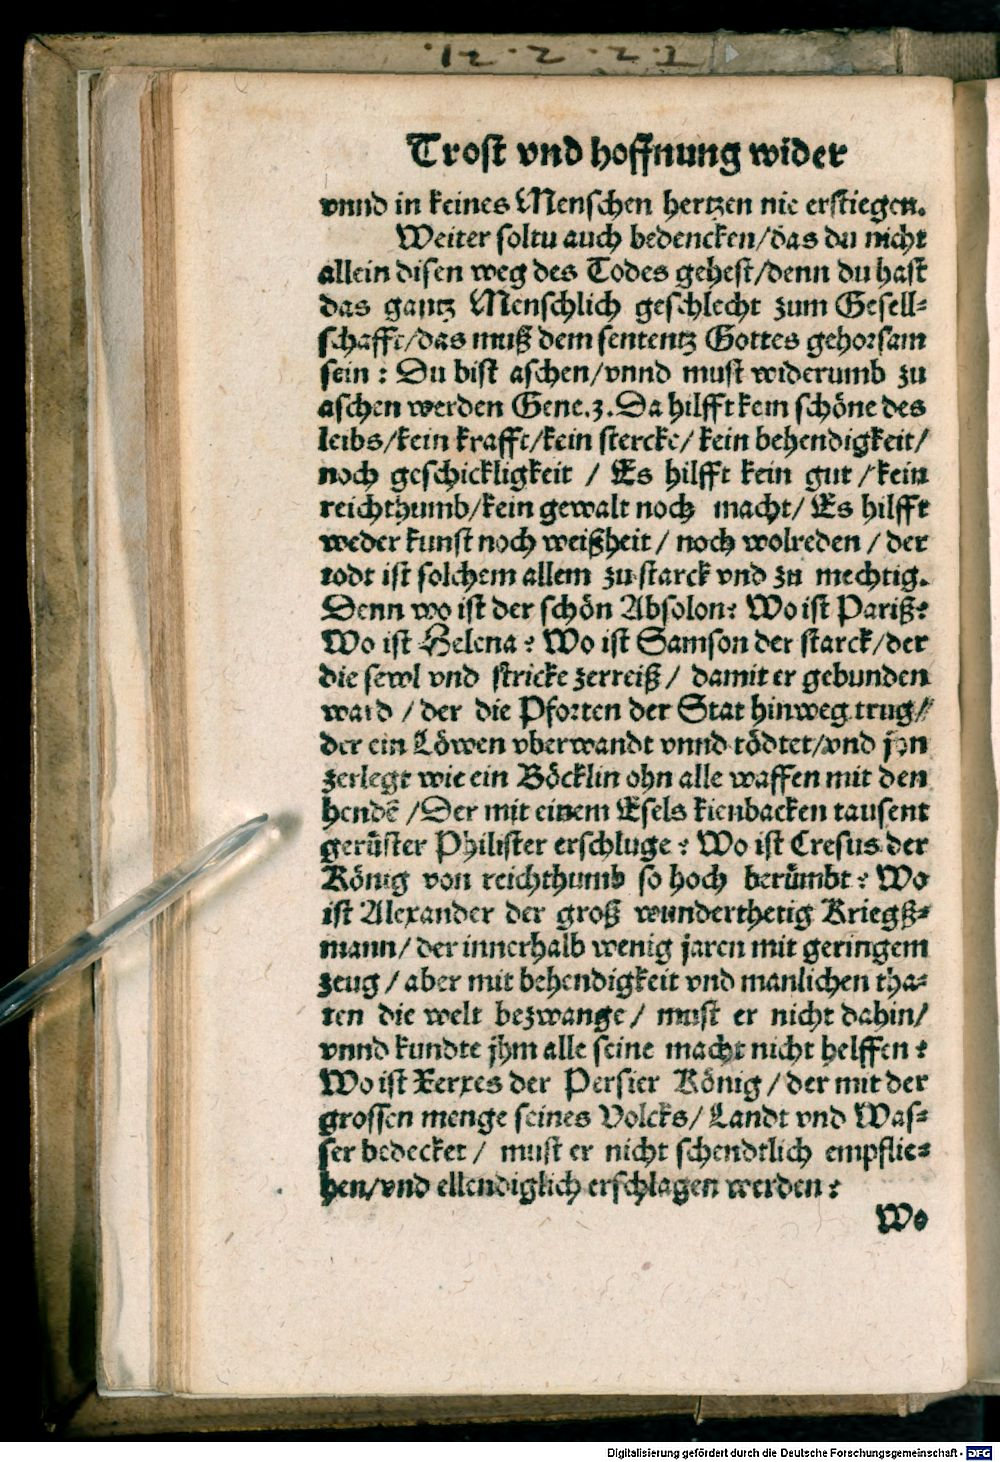 Trost vnd hoffnung wider
vnnd in keines Menschen hertzen nie erstiegen.
Weiter soltu auch bedencken/das du nicht
allein disen weg des Todes gehest/denn du hast
das gantz Menschlich geschlecht zum Gesell=
schafft/das muß dem sententz Gottes gehorsam
sein : Du bist aschen/vnnd must widerumb zu
aschen werden Gene.3. Da hilfft kein schöne des
leibs/kein krafft/kein stercke/ kein behendigkeit/
noch geschickligkeit / Es hilfft kein gut / kein
reichthumb/kein gewalt noch macht/ Es hilfft
weder kunst noch weißheit / noch wolreden / der
todt ist solchem allem zu starck vnd zu mechtig.
Denn wo ist der schön Absolon? Wo ist Pariß?
Wo ist Helena ? Wo ist Samson der starck/der
die sewl vnd stricke zerreiß / damit er gebunden
ward / der die Pforten der Stat hinweg trug/
der ein Löwen vberwandt vnnd tödtet/vnd jhn
zerlegt wie ein Böcklin ohn alle waffen mit den
hendē /Der mit einem Esels kienbacken tausent
gerüster Philister erschluge ? Wo ist Cresus der
König von reichthumb so hoch berümbt ? Wo
ist Alexander der groß wunderthetig Kriegß=
mann/ der innerhalb wenig jaren mit geringem
zeug / aber mit behendigkeit vnd manlichen tha=
ten die welt bezwange / must er nicht dahin/
vnnd kundte jhm alle seine macht nicht helffen ?
Wo ist Xerxes der Persier König / der mit der
grossen menge seines Volcks/ Landt vnd Was=
ser bedecket / must er nicht schendtlich empflie=
hen/vnd ellendiglich erschlagen werden ?
Wo
Digitalisierung gefördert durch die Deutsche Forschungsgemeinschaft - DFG